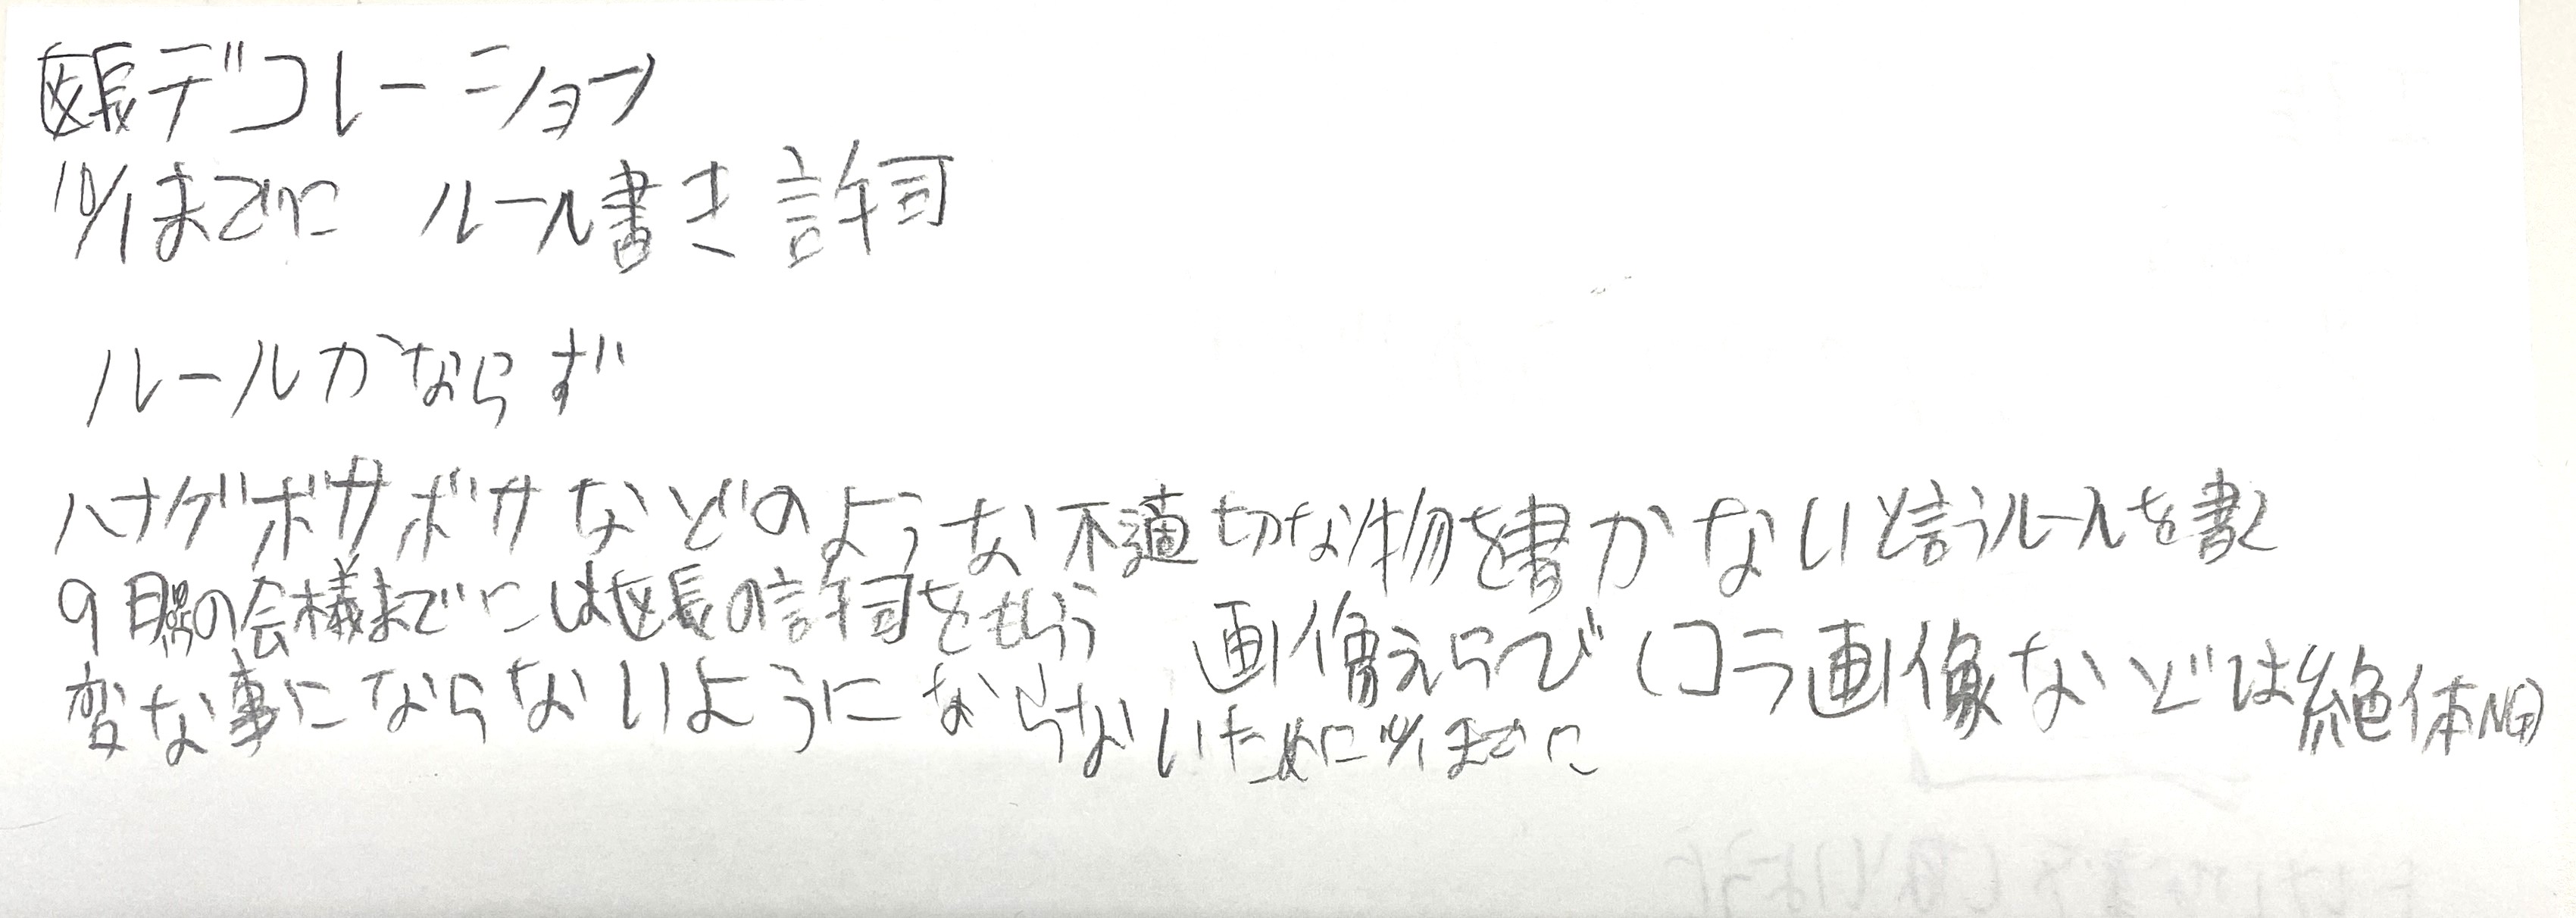 区長デコレーション
10/1までに ルール書き 許可
ルールかならず
ハナゲボサボサなどのような不適切な物を書かないと言うルールを書く
9月の会様までには区長の許可をもらう
画像えらび(コラ画像などは絶体NG)
変な事にならないようにならないために10/1までに